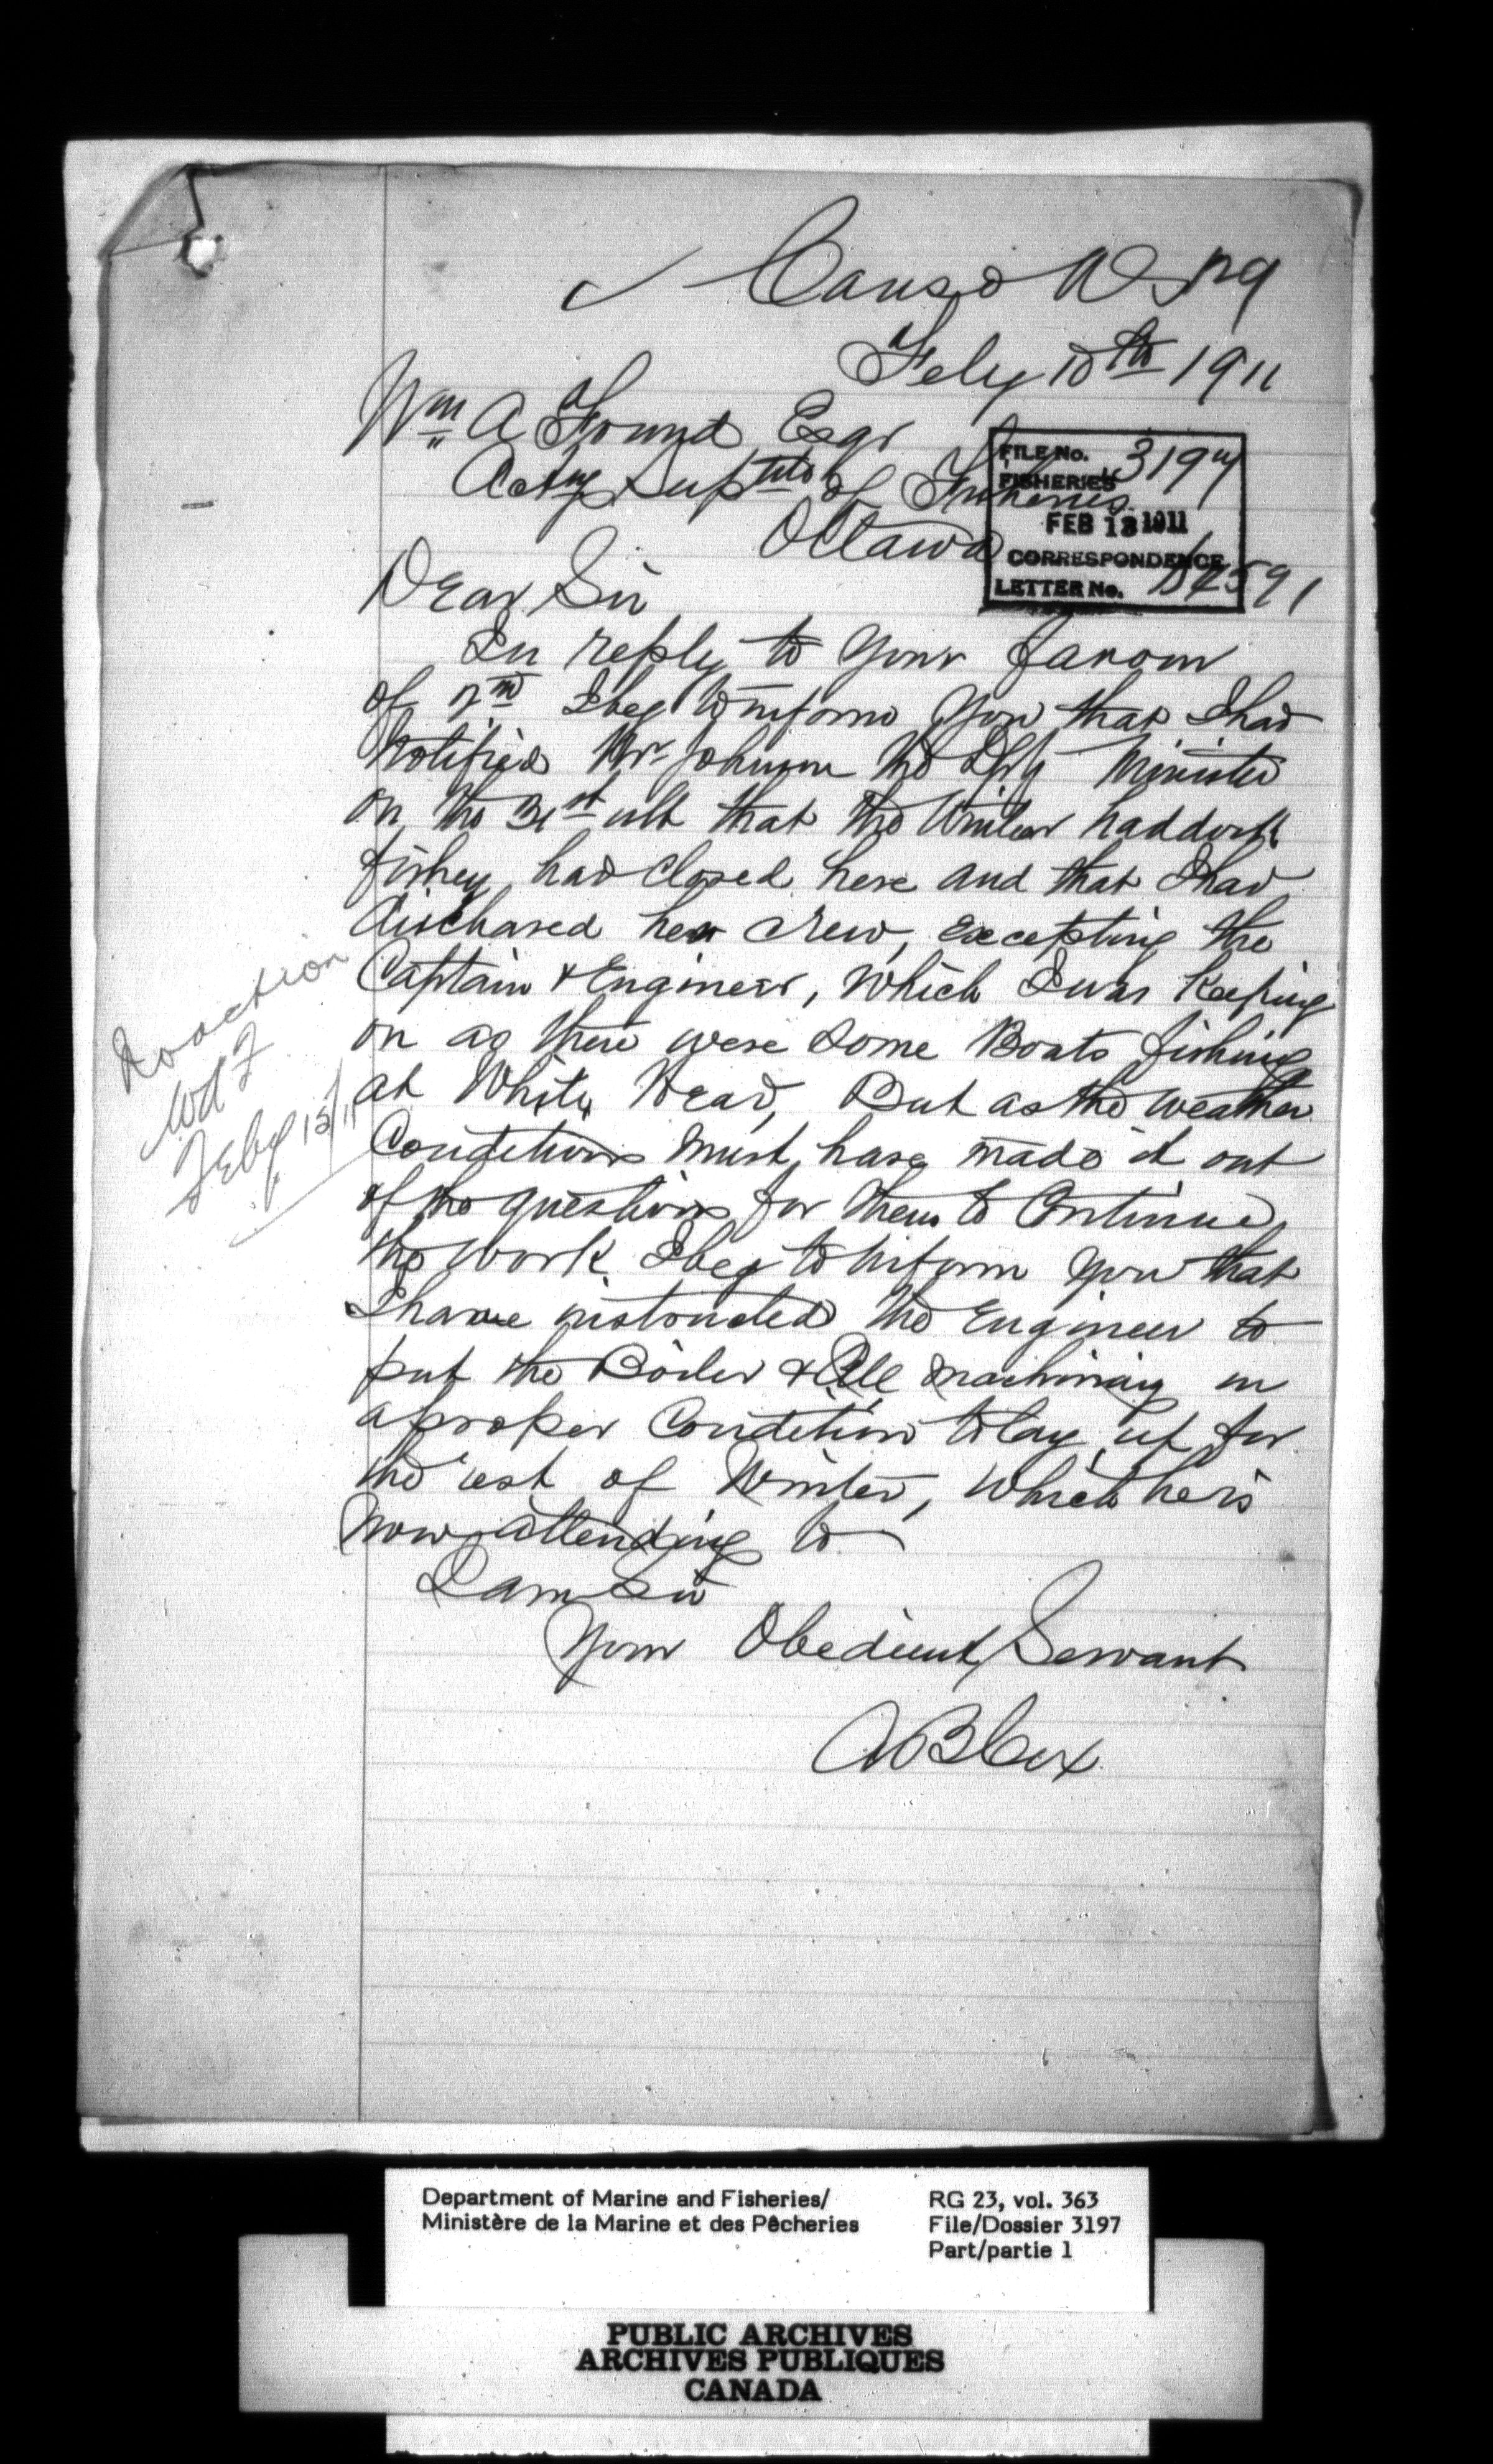 Canso N.S.
Feby 10th 1911
Wm A Found Esqr
Acting Suptnt of Fisheries
Ottawa
FILE No. 3197
FISHERIES
FEB 13 1911
CORRESPONDENCE
LETTER No.
Dear Sir
In reply to your favour
of I beg to inform you that I had
notified Mr Johnson the Dpty Minister
on the 31st ult that the Winter haddock
fishey had Closed here and that I had
discharged her crew, excepting the
Captain & Engineer, which I was Keeping
on as there were some Boats fishing
at White Head, But as the weather
Conditions must have made it out
of the question for them to Continue
the work I beg to inform you that
I have instructed the Engineer to
put the Boiler & All machinery in
a proper Condition to lay up for
the rest of Winter, which he is
now attending to
I am Sir
Your Obedient Servant
A B Cox
No action
WAF
Feby 15/11
Department of Marine and Fisheries/
Ministère de la Marine et des Pêcheries
RG 23, vol. 363
File/Dossier 3197
Part/partie 1
PUBLIC ARCHIVES
ARCHIVES PUBLIQUES
CANADA